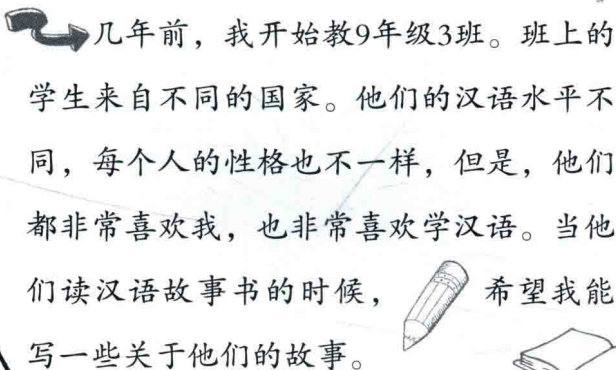 几年前，我开始教9年级3班。班上的
学生来自不同的国家。他们的汉语水平不
同，每个人的性格也不一样，但是，他们
都非常喜欢我，也非常喜欢学汉语。当他
们读汉语故事书的时候，希望我能
写一些关于他们的故事。